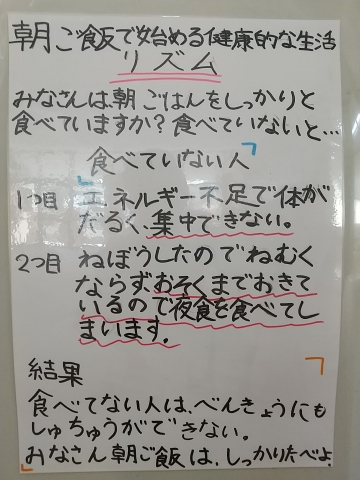 朝ご飯で始める健康的な生活
リズム
みなさんは、朝ごはんをしっかりと
食べていますか？食べていないと…
食べていない人
1つ目 エネルギー不足で体が
だるく、集中できない。
2つ目 ねぼうしたのでねむく
ならずおそくまでおきて
いるので夜食を食べてし
まいます。
結果
食べてない人は、べんきょうにも
しゅちゅうができない。
みなさん朝ご飯は、しっかりたべよ、